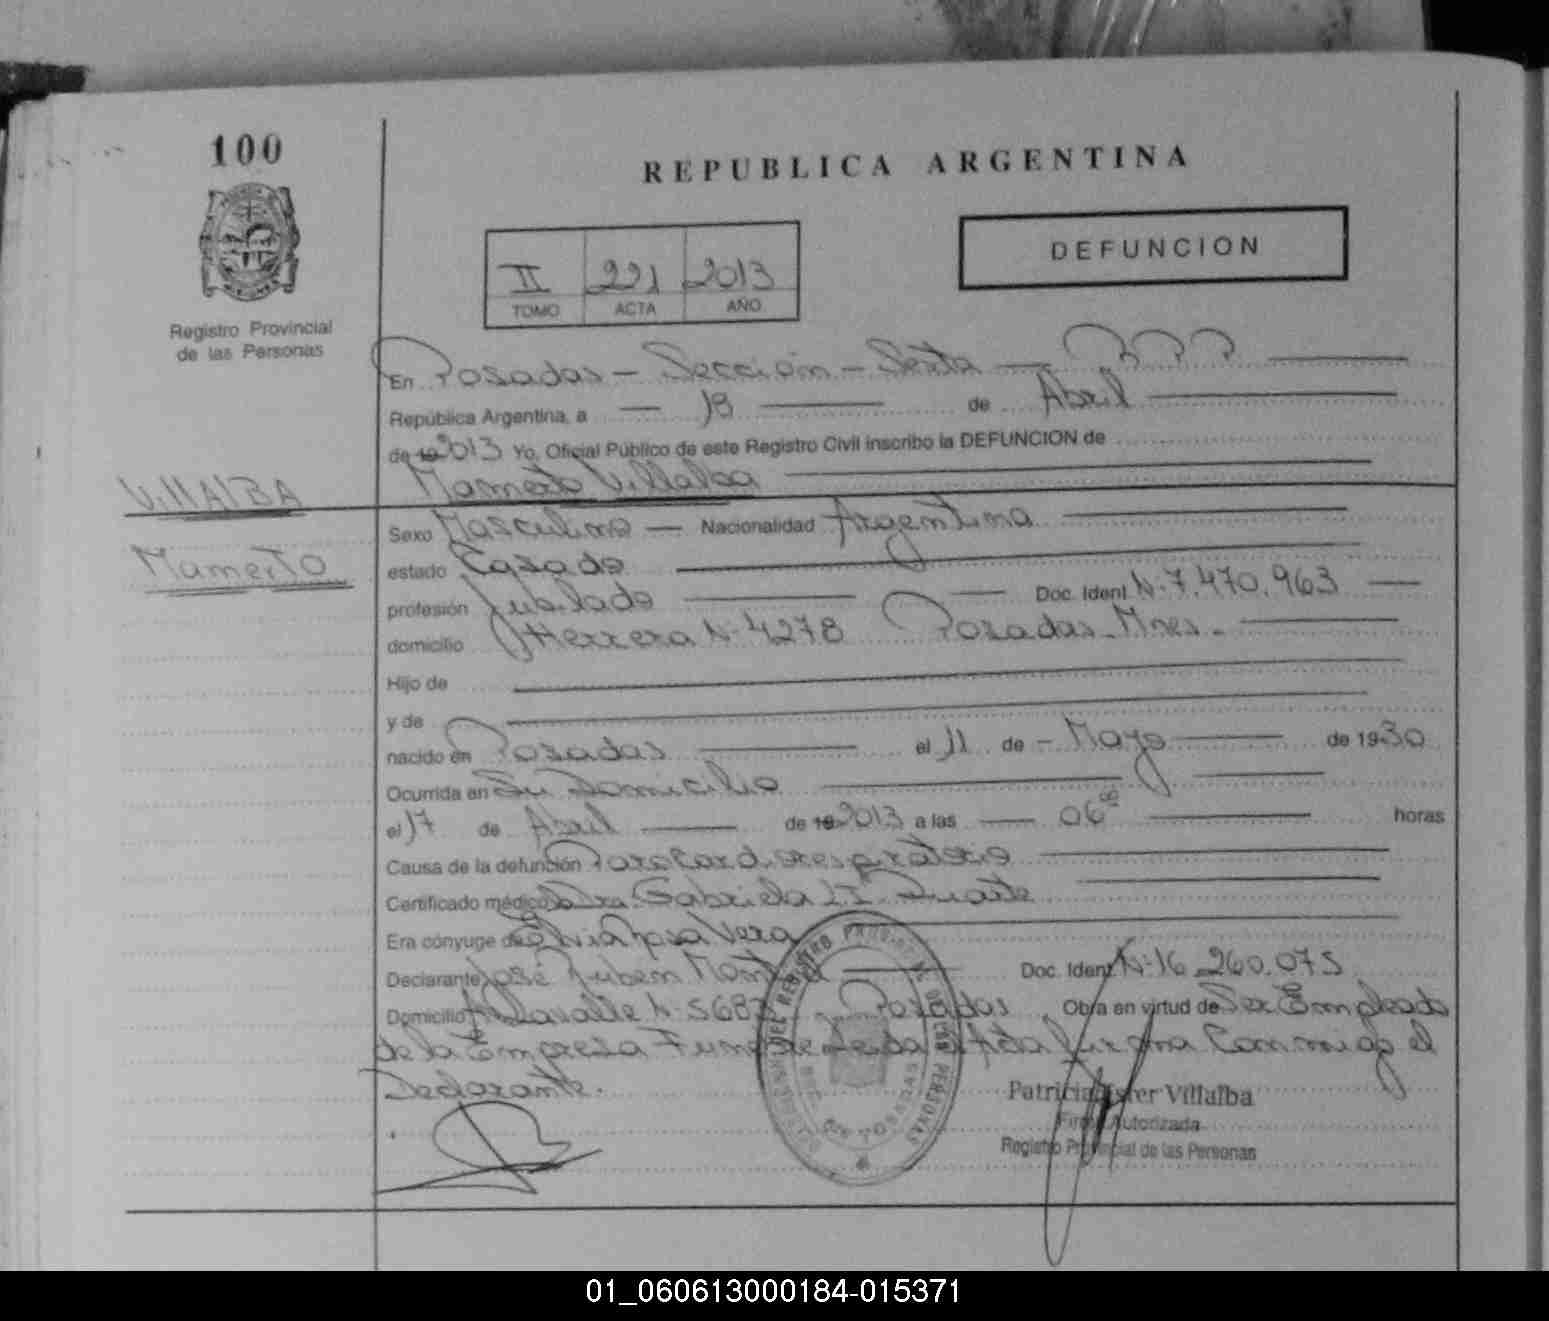 100
REPUBLICA ARGENTINA
DEFUNCION
II 221 2013
TOMO ACTA AÑO
Registro Provincial
de las Personas
En Posadas - Sección - Sexta
República Argentina, a 18 de Abril
de 19 2013 Yo, Oficial Público de este Registro Civil inscribo la DEFUNCION de
VillAlBA
Mamerto Villalba
Mamerto
Sexo Masculino Nacionalidad Argentina
estado Casado
profesión Jubilado Doc. Ident. Nº 7.470.963
domicilio Herrera Nº 4278 Posadas - Mnes.
Hijo de
y de
nacido en Posadas el 11 de Mayo de 1930
Ocurrida en Su Domicilio
el 17 de Abril de 19 2013 a las 06 00 horas
Causa de la defunción Paro Cardiorespiratorio
Certificado médico Dra. Gabriela Duarte
Era cónyuge de Rosa Vera
Declarante José Ruben Doc. Ident. Nº 16.260.075
Domicilio Lavalle Nº Posadas Obra en virtud de Ser Empleado
de la Empresa Firma Conmigo el
Declarante.
Patricia Villalba
Firma Autorizada
Registro Provincial de las Personas
01_060613000184-015371